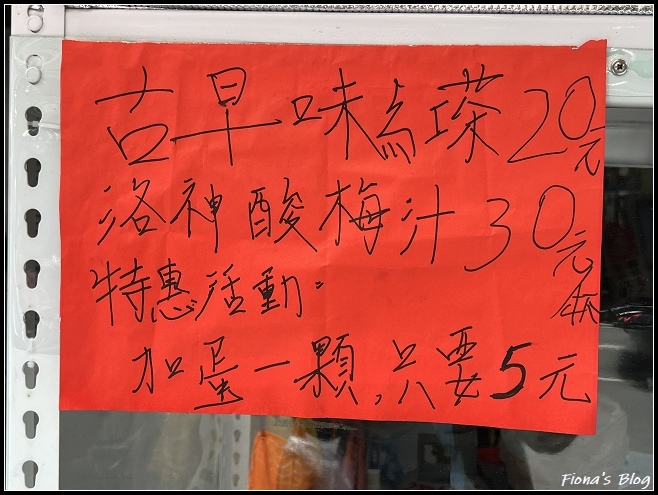 古早味紅茶20元
洛神酸梅汁30元杯
特惠活動:
加蛋一顆,只要5元
Fiona's Blog